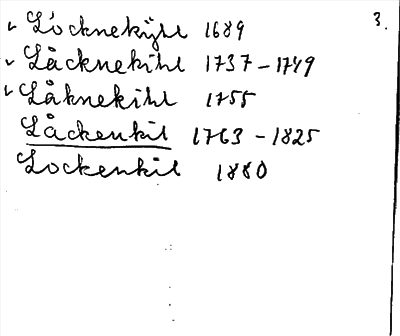 v Locknekijhl 1689 3.
v Låcknekihl 1737-1749
v Låknekihl 1755
Låckenkil 1763-1825
Lockenkil 1880